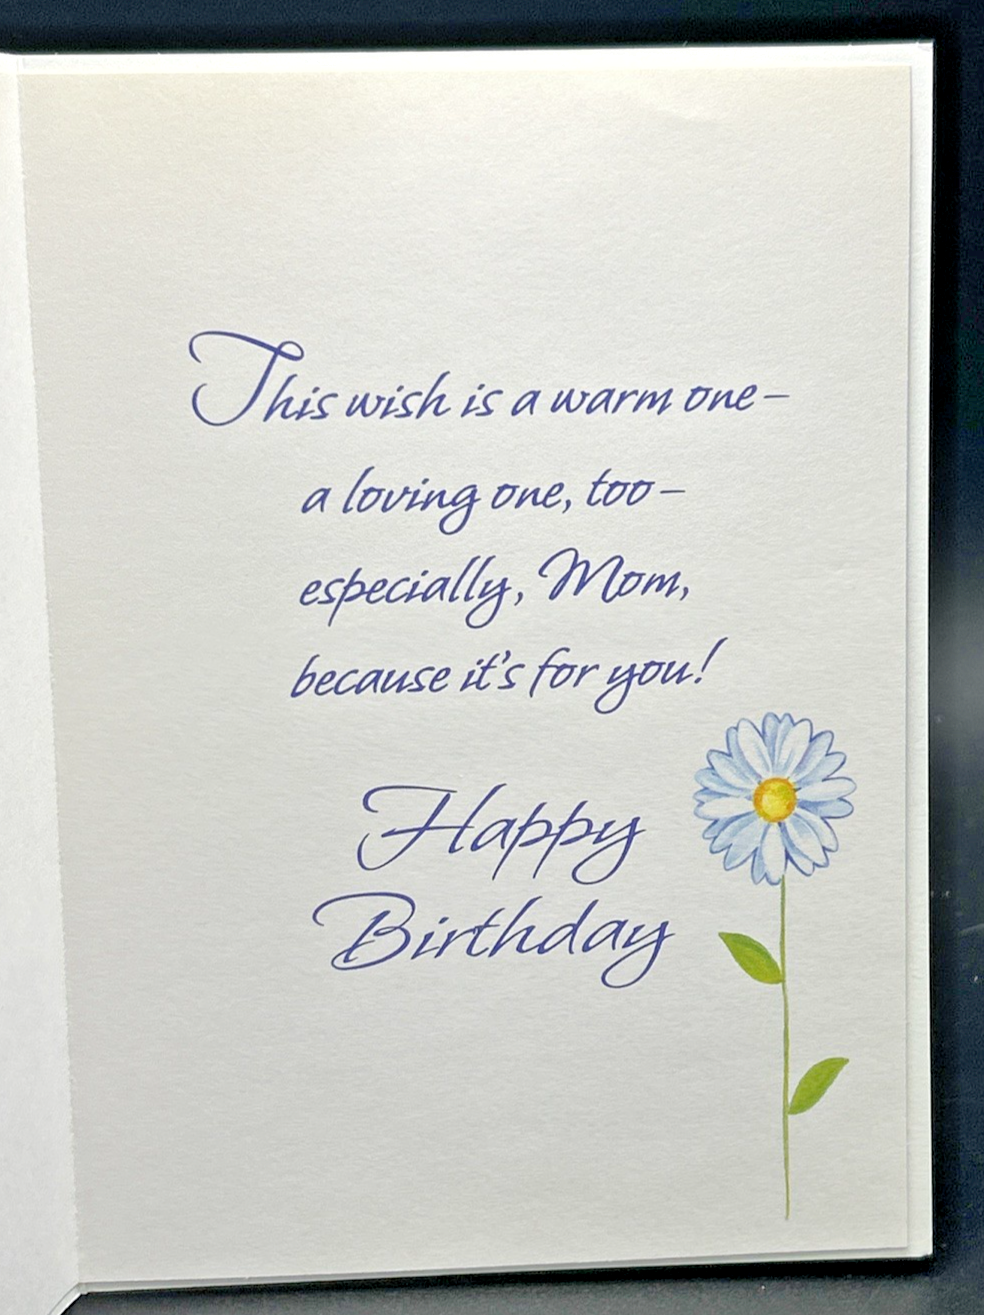 This wish is a warm one–
a loving one, too–
especially, Mom,
because it's for you!
Happy
Birthday